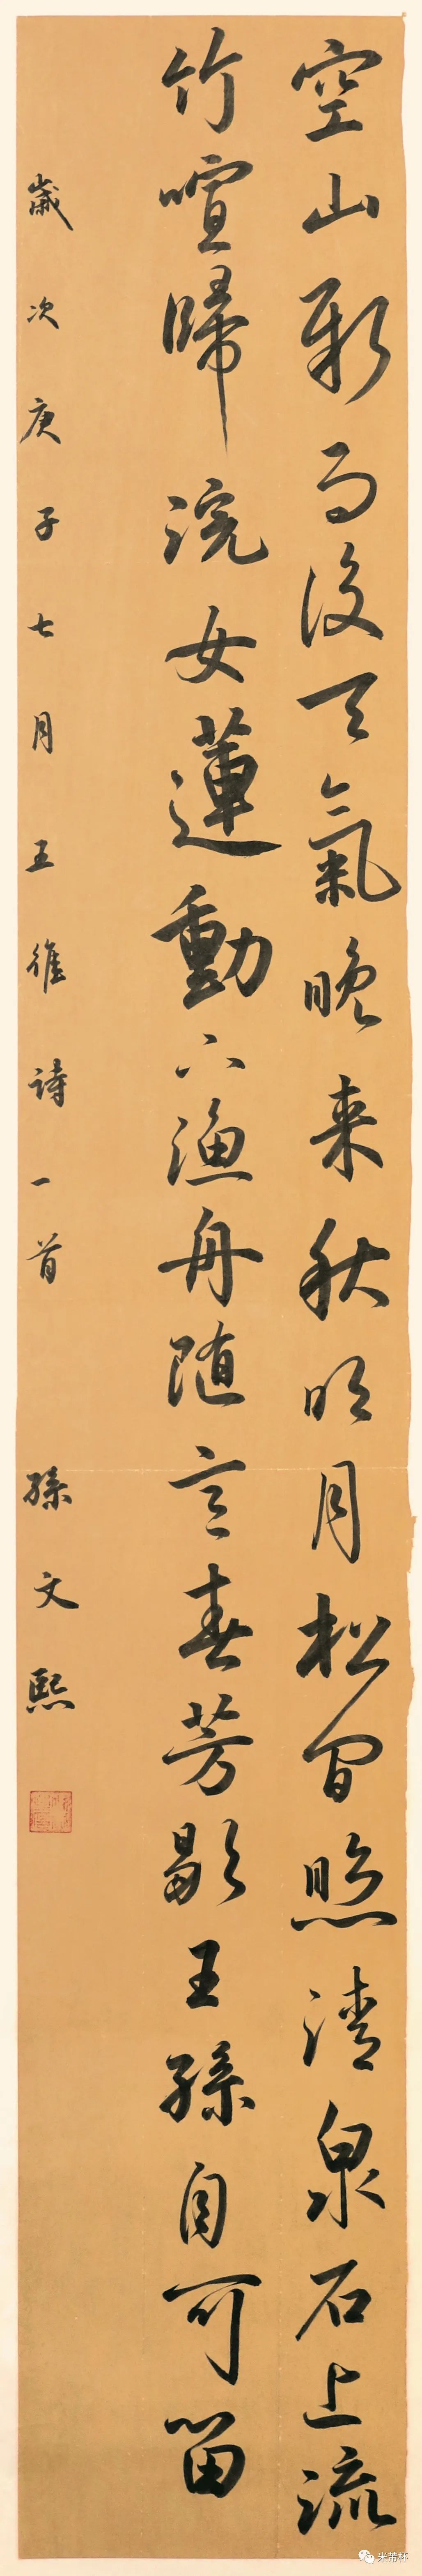 空山新雨後天氣晚来秋明月松間照清泉石上流
竹喧歸浣女蓮動下漁舟随意春芳歇王孫自可留
歲次庚子七月王維詩一首 孫文熙
米芾杯